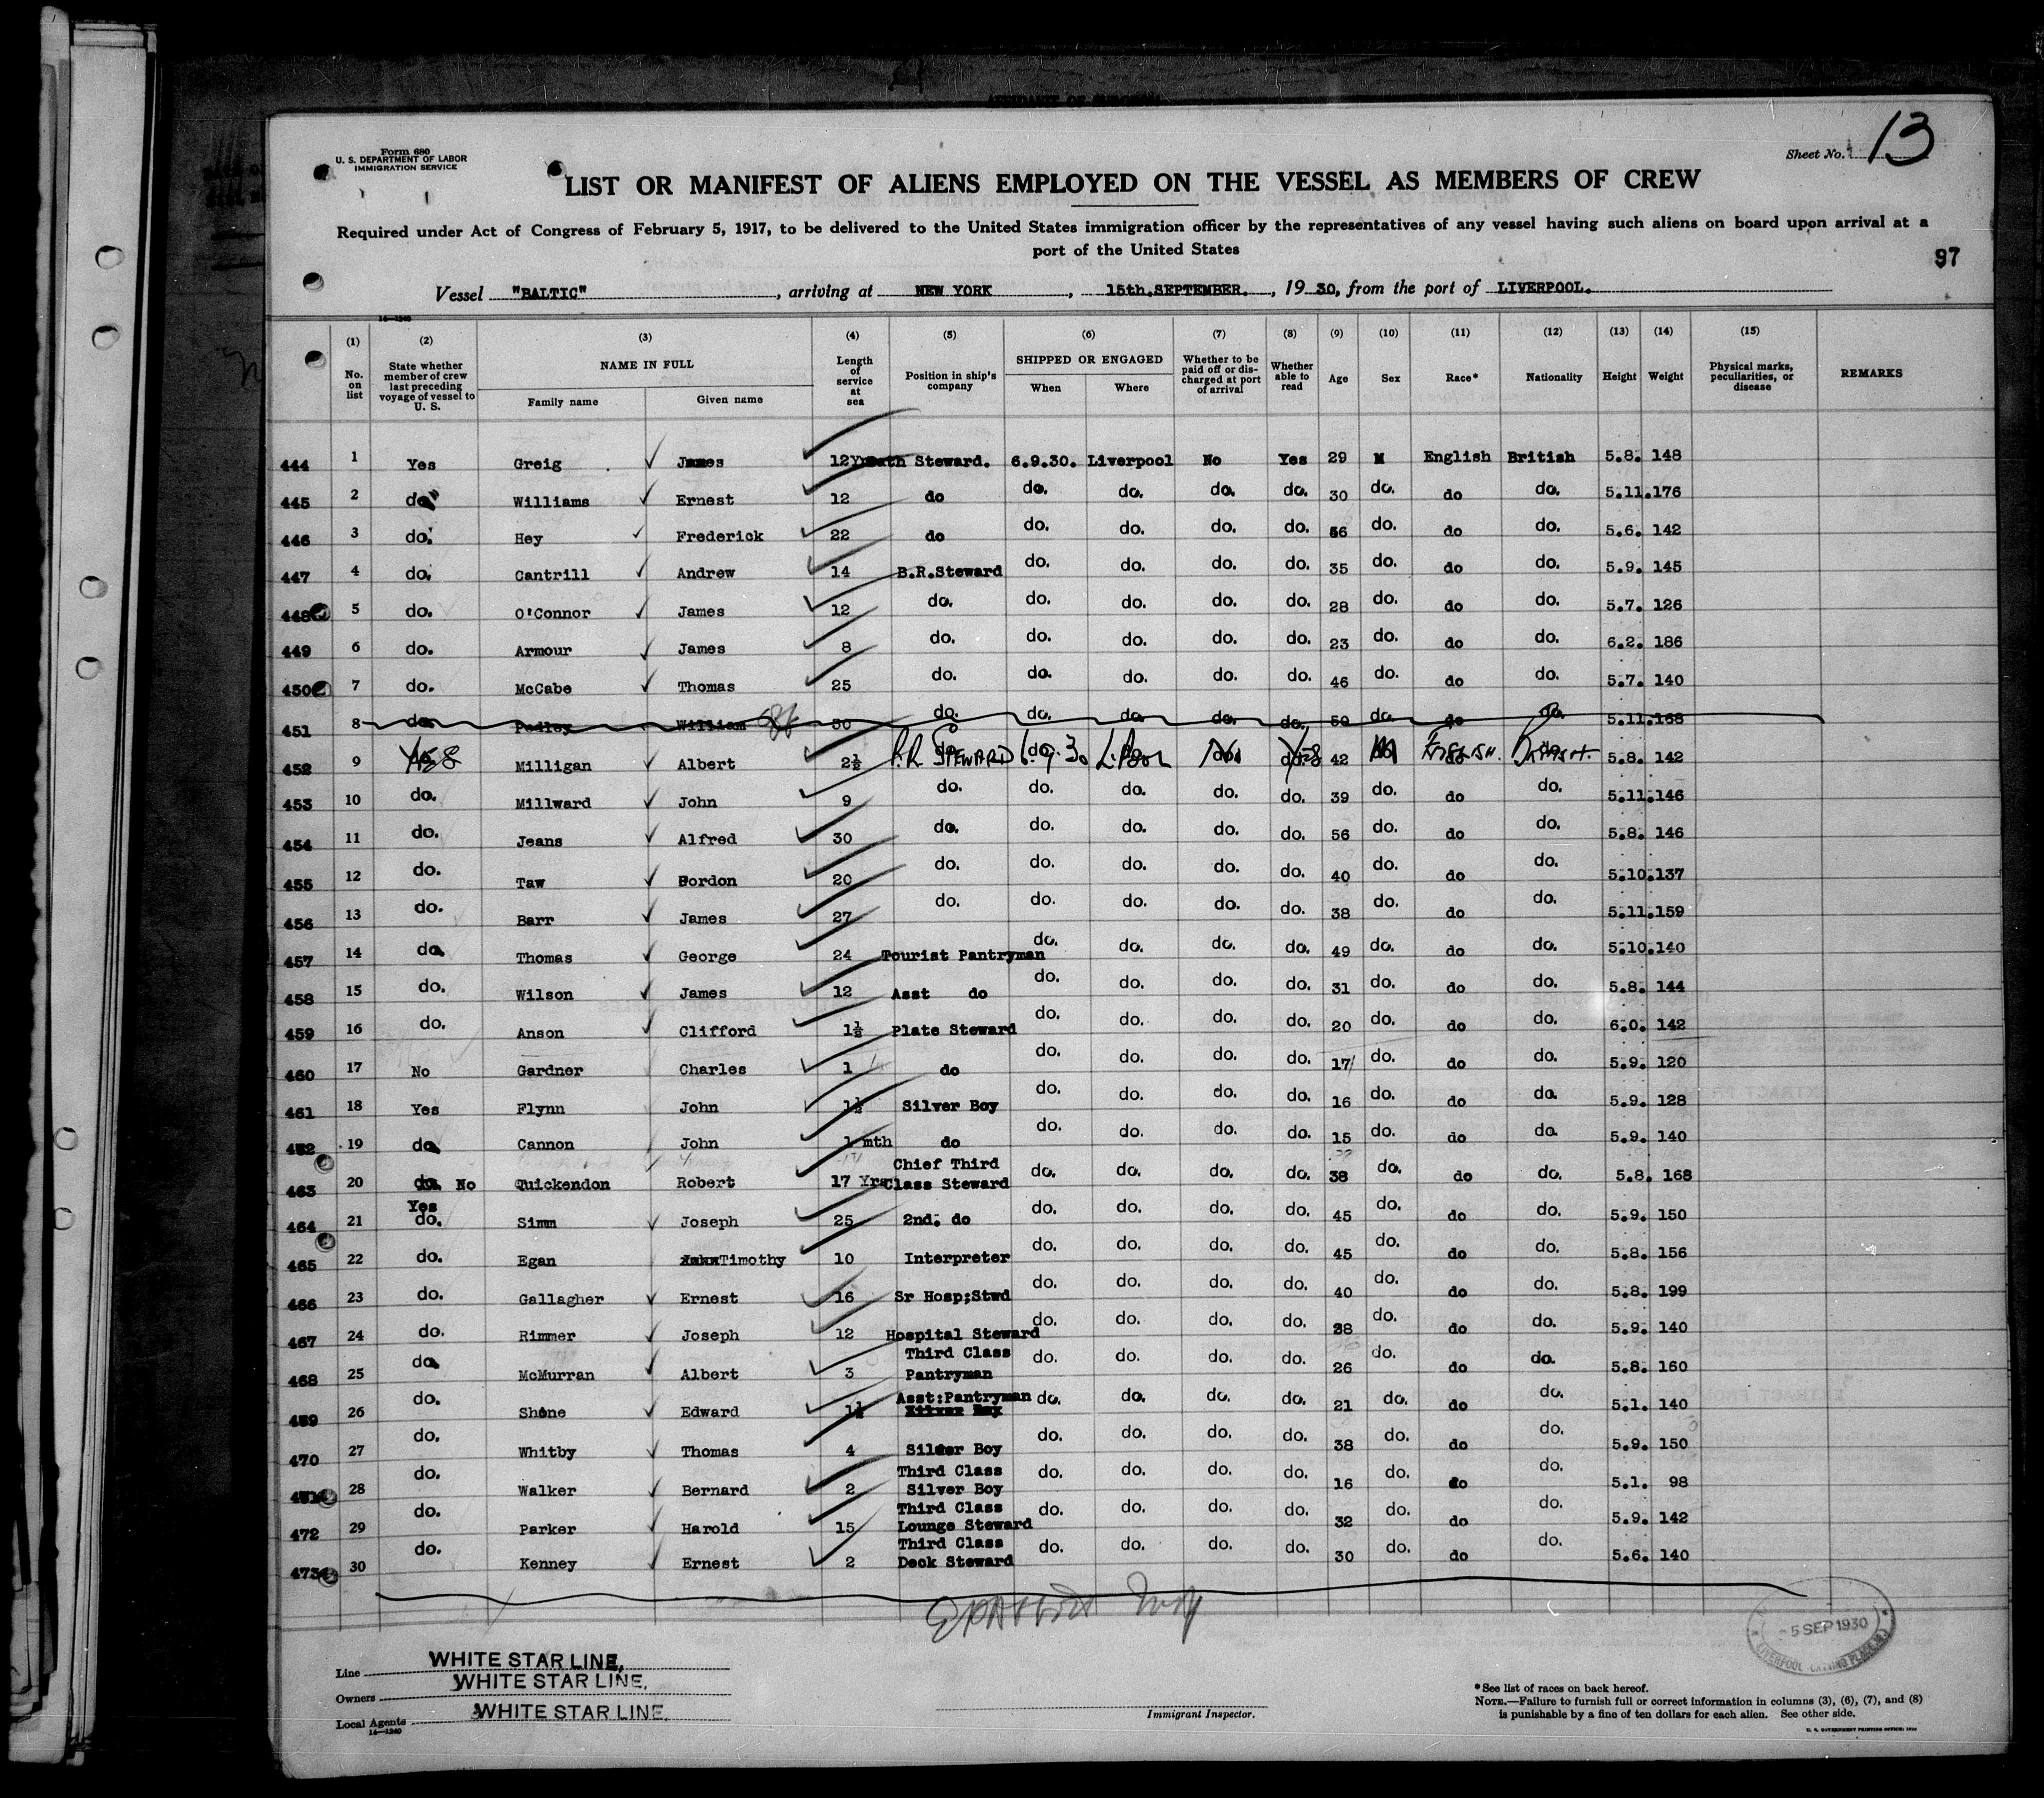 AFFIDAVIT OF SURGEON
Form 680
U. S. DEPARTMENT OF LABOR
IMMIGRATION SERVICE
Sheet No. 13
LIST OR MANIFEST OF ALIENS EMPLOYED ON THE VESSEL AS MEMBERS OF CREW
Required under Act of Congress of February 5, 1917, to be delivered to the United States immigration officer by the representatives of any vessel having such aliens on board upon arrival at a
port of the United States
97
Vessel "BALTIC", arriving at NEW YORK, 15th.SEPTEMBER., 1930, from the port of LIVERPOOL.
14—1240
(1) (2) (3) (4) (5) (6) (7) (8) (9) (10) (11) (12) (13) (14) (15)
No. on list State whether member of crew last preceding voyage of vessel to U. S. NAME IN FULL Family name Given name Length of service at sea Position in ship's company SHIPPED OR ENGAGED When Where Whether to be paid off or discharged at port of arrival Whether able to read Age Sex Race* Nationality Height Weight Physical marks, peculiarities, or disease REMARKS
444 1 Yes Greig James 12Yrs Bath Steward. 6.9.30. Liverpool No Yes 29 M English British 5.8. 148
445 2 do. Williams Ernest 12 do do. do. do. do. 30 do. do do. 5.11.176
446 3 do. Hey Frederick 22 do do. do. do. do. 56 do. do do. 5.6. 142
447 4 do. Cantrill Andrew 14 B.R.Steward do. do. do. do. 35 do. do do. 5.9. 145
448 5 do. O'Connor James 12 do. do. do. do. do. 28 do. do do. 5.7. 126
449 6 do. Armour James 8 do. do. do. do. do. 23 do. do do. 6.2. 186
450 7 do. McCabe Thomas 25 do. do. do. do. do. 46 do. do do. 5.7. 140
451 8 do. Pedley William 30 do. do. do. do. do. 50 do. do do. 5.11.168
452 9 Yes Milligan Albert 2½ B.R STEWARD 6.9.30 L.Pool No Yes 42 M ENGLISH. BRITISH. 5.8. 142
453 10 do. Millward John 9 do. do. do. do. do. 39 do. do do. 5.11.146
454 11 do. Jeans Alfred 30 do. do. do. do. do. 56 do. do do. 5.8. 146
455 12 do. Taw Gordon 20 do. do. do. do. do. 40 do. do do. 5.10.137
456 13 do. Barr James 27 do. do. do. do. do. 38 do. do do. 5.11.159
457 14 do. Thomas George 24 Tourist Pantryman do. do. do. do. 49 do. do do. 5.10.140
458 15 do. Wilson James 12 Asst do do. do. do. do. 31 do. do do. 5.8. 144
459 16 do. Anson Clifford 1½ Plate Steward do. do. do. do. 20 do. do do. 6.0. 142
460 17 No Gardner Charles 1 do do. do. do. do. 17 do. do do. 5.9. 120
461 18 Yes Flynn John 1½ Silver Boy do. do. do. do. 16 do. do do. 5.9. 128
462 19 do. Cannon John 1 mth do do. do. do. do. 15 do. do do. 5.9. 140
463 20 do. No Quickendon Robert 17 Yrs Chief Third Class Steward do. do. do. do. 38 do. do do. 5.8. 168
464 21 Yes do. Simm Joseph 25 2nd. do do. do. do. do. 45 do. do do. 5.9. 150
465 22 do. Egan Timothy 10 Interpreter do. do. do. do. 45 do. do do. 5.8. 156
466 23 do. Gallagher Ernest 16 Sr Hosp;Stwd do. do. do. do. 40 do. do do. 5.8. 199
467 24 do. Rimmer Joseph 12 Hospital Steward do. do. do. do. 28 do. do do. 5.9. 140
468 25 do. McMurran Albert 3 Third Class Pantryman do. do. do. do. 26 do. do do. 5.8. 160
469 26 do. Shone Edward 1½ Asst:Pantryman do. do. do. do. 21 do. do do. 5.1. 140
470 27 do. Whitby Thomas 4 Silver Boy do. do. do. do. 38 do. do do. 5.9. 150
471 28 do. Walker Bernard 2 Third Class Silver Boy do. do. do. do. 16 do. do do. 5.1. 98
472 29 do. Parker Harold 15 Third Class Lounge Steward do. do. do. do. 32 do. do do. 5.9. 142
473 30 do. Kenney Ernest 2 Third Class Deck Steward do. do. do. do. 30 do. do do. 5.6. 140
-5 SEP 1930
LIVERPOOL
Line WHITE STAR LINE,
Owners WHITE STAR LINE.
Local Agents WHITE STAR LINE.
14—1240
Immigrant Inspector.
*See list of races on back hereof.
NOTE.—Failure to furnish full or correct information in columns (3), (6), (7), and (8)
is punishable by a fine of ten dollars for each alien. See other side.
U. S. GOVERNMENT PRINTING OFFICE: 1930